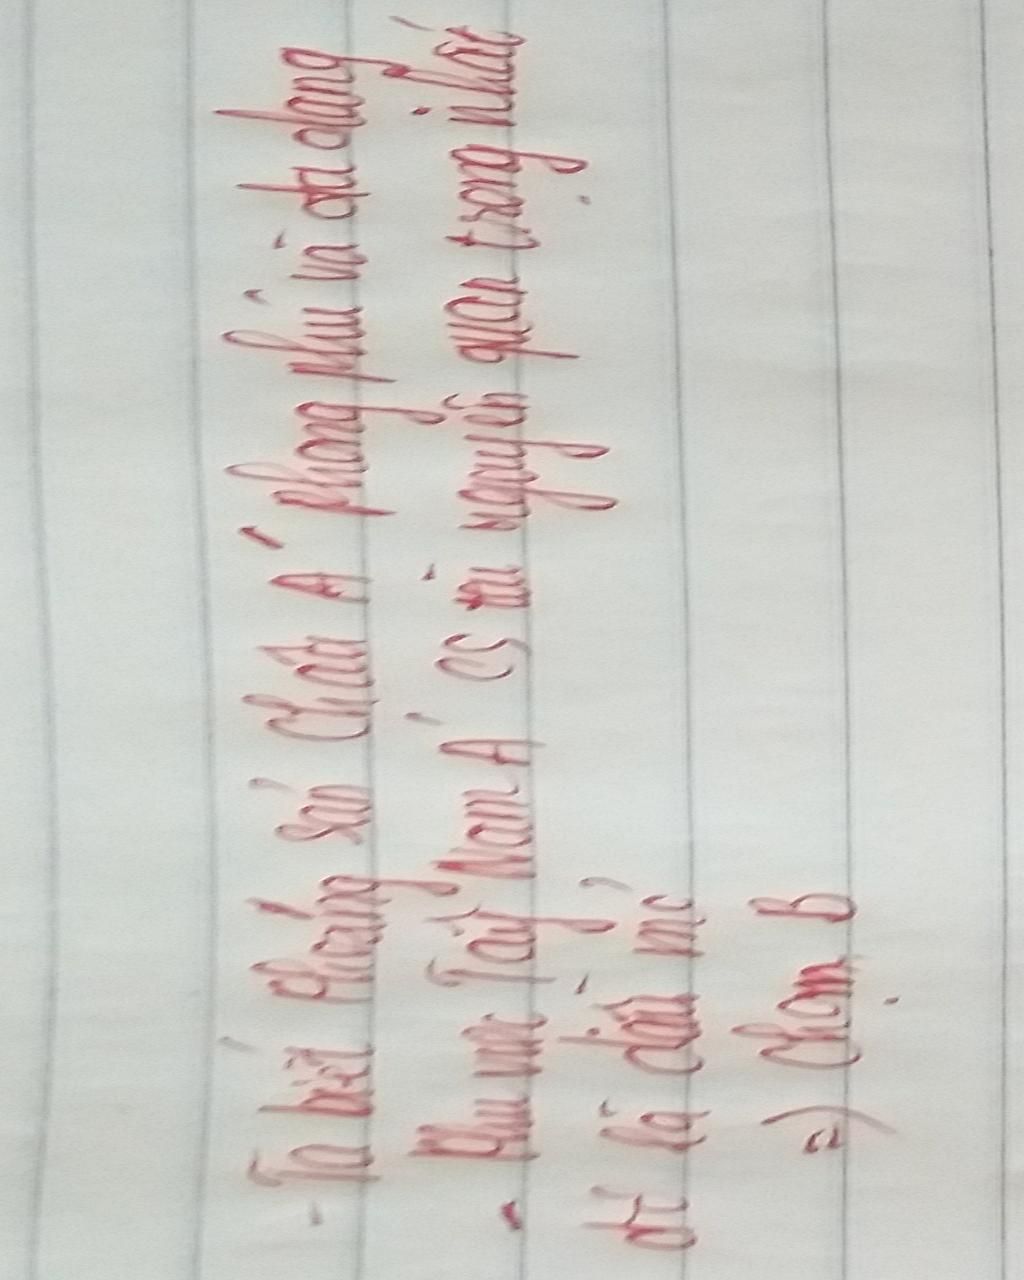 - Ta biết khoáng sản Châu Á phong phú và đa dạng
- Khu vực Tây Nam Á có tài nguyên quan trọng nhất
đó là dầu mỏ
=) Chọn B